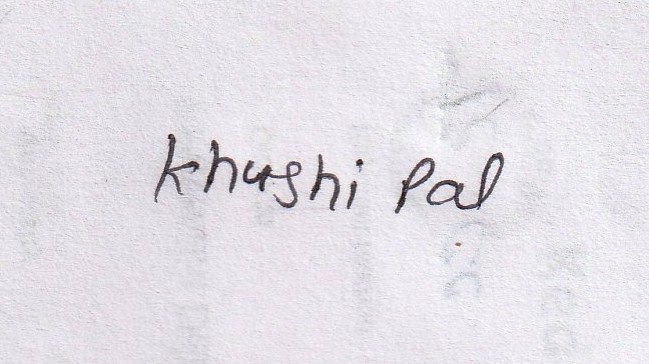 Khushi Pal